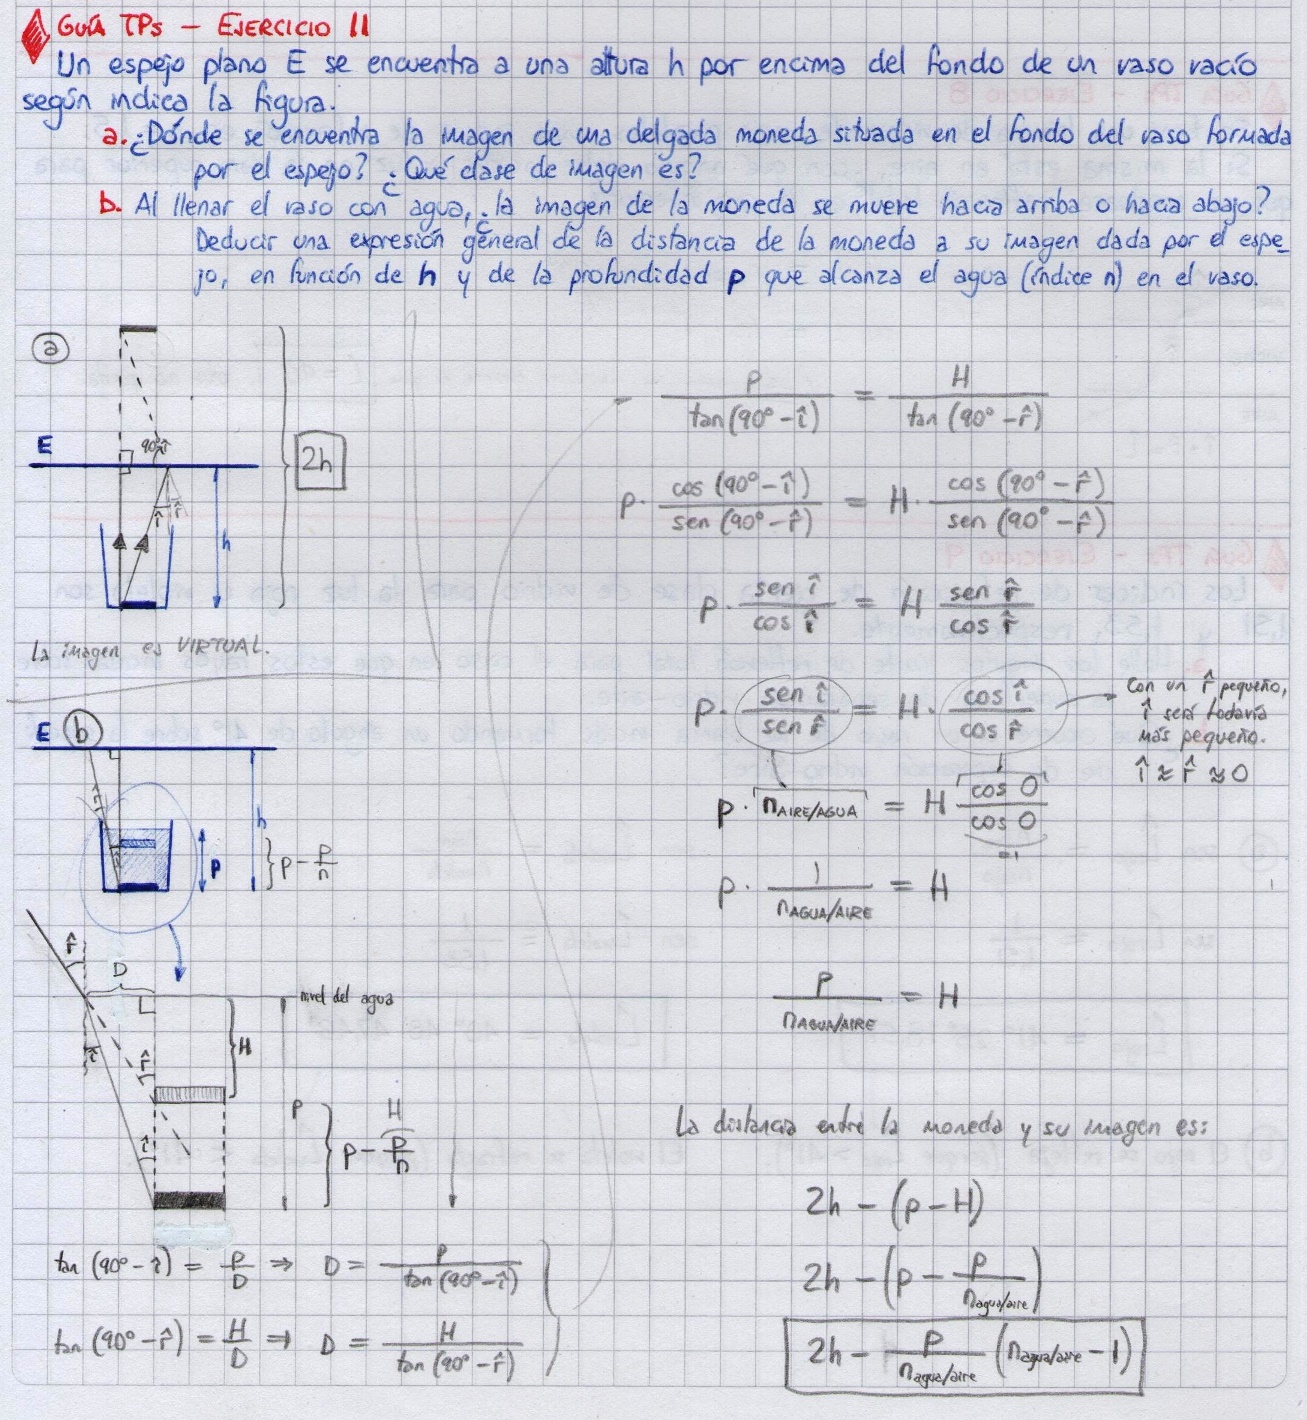 GUÍA TPs - EJERCICIO 11
Un espejo plano E se encuentra a una altura h por encima del fondo de un vaso vacío
según indica la figura.
a. ¿Dónde se encuentra la imagen de una delgada moneda situada en el fondo del vaso formada
por el espejo? ¿Qué clase de imagen es?
b. Al llenar el vaso con agua, ¿la imagen de la moneda se mueve hacia arriba o hacia abajo?
Deducir una expresión general de la distancia de la moneda a su imagen dada por el espe-
jo, en función de h y de la profundidad p que alcanza el agua (índice n) en el vaso.
a
E
90°-î
2h
î
î
h
La imagen es VIRTUAL.
E b
h
p
} p - p/n
r̂
D
nivel del agua
î
r̂
H
î
P
} p - p/n
H
tan (90° - î) = p/D ⇒ D = p / tan (90° - î)
tan (90° - r̂) = H/D ⇒ D = H / tan (90° - r̂)
p / tan (90° - î) = H / tan (90° - r̂)
p · cos (90° - î) / sen (90° - r̂) = H · cos (90° - r̂) / sen (90° - r̂)
p · sen î / cos î = H sen r̂ / cos r̂
p · sen î / sen r̂ = H · cos î / cos r̂
Con un r̂ pequeño,
î será todavía
más pequeño.
î ≈ r̂ ≈ 0
p · n AIRE/AGUA = H cos 0 / cos 0
=1
p · 1 / n AGUA/AIRE = H
p / n AGUA/AIRE = H
La distancia entre la moneda y su imagen es:
2h - (p - H)
2h - (p - p / n agua/aire)
2h - p / n agua/aire (n agua/aire - 1)